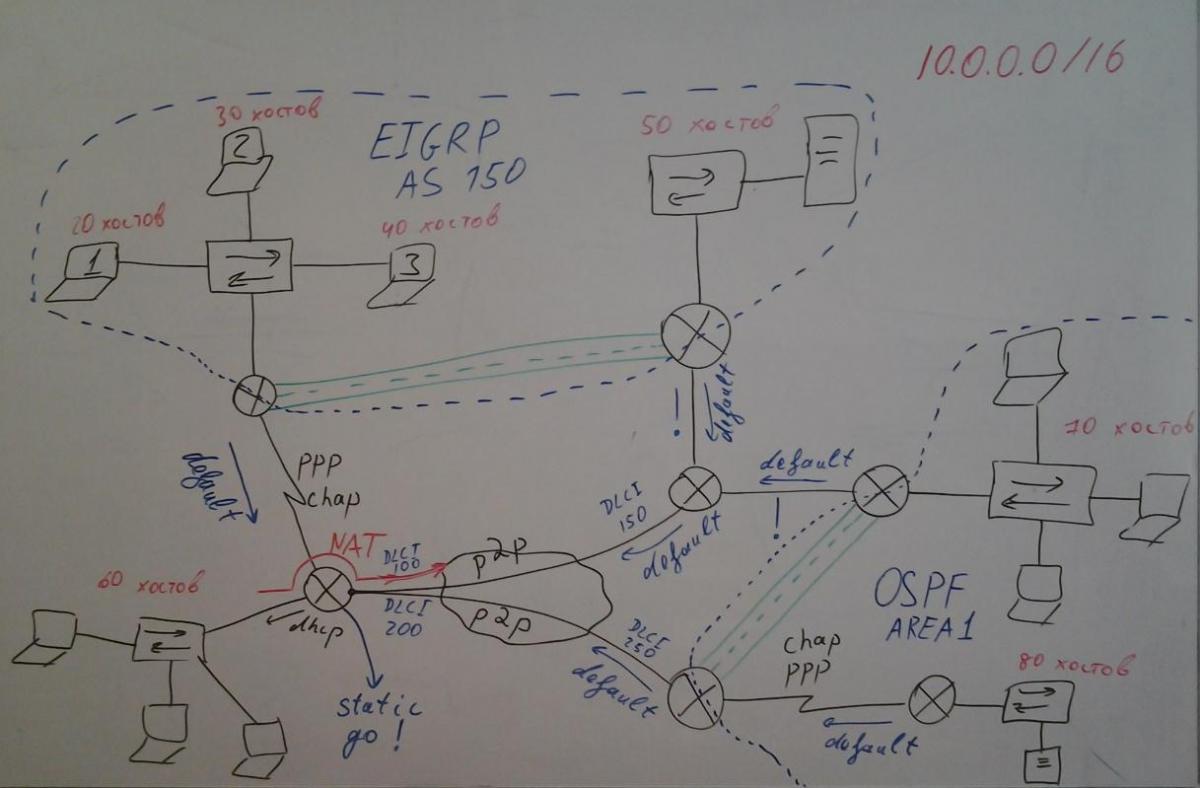 10.0.0.0/16
30 хостов
EIGRP
AS 150
50 хостов
2
20 хостов
40 хостов
1
3
default
default
PPP
chap
default
!
70 хостов
DLCI
150
!
default
NAT
DLCI
100
p2p
60 хостов
dhcp
DLCI
200
p2p
DLCI
250
OSPF
AREA1
chap
PPP
80 хостов
default
static
go!
default